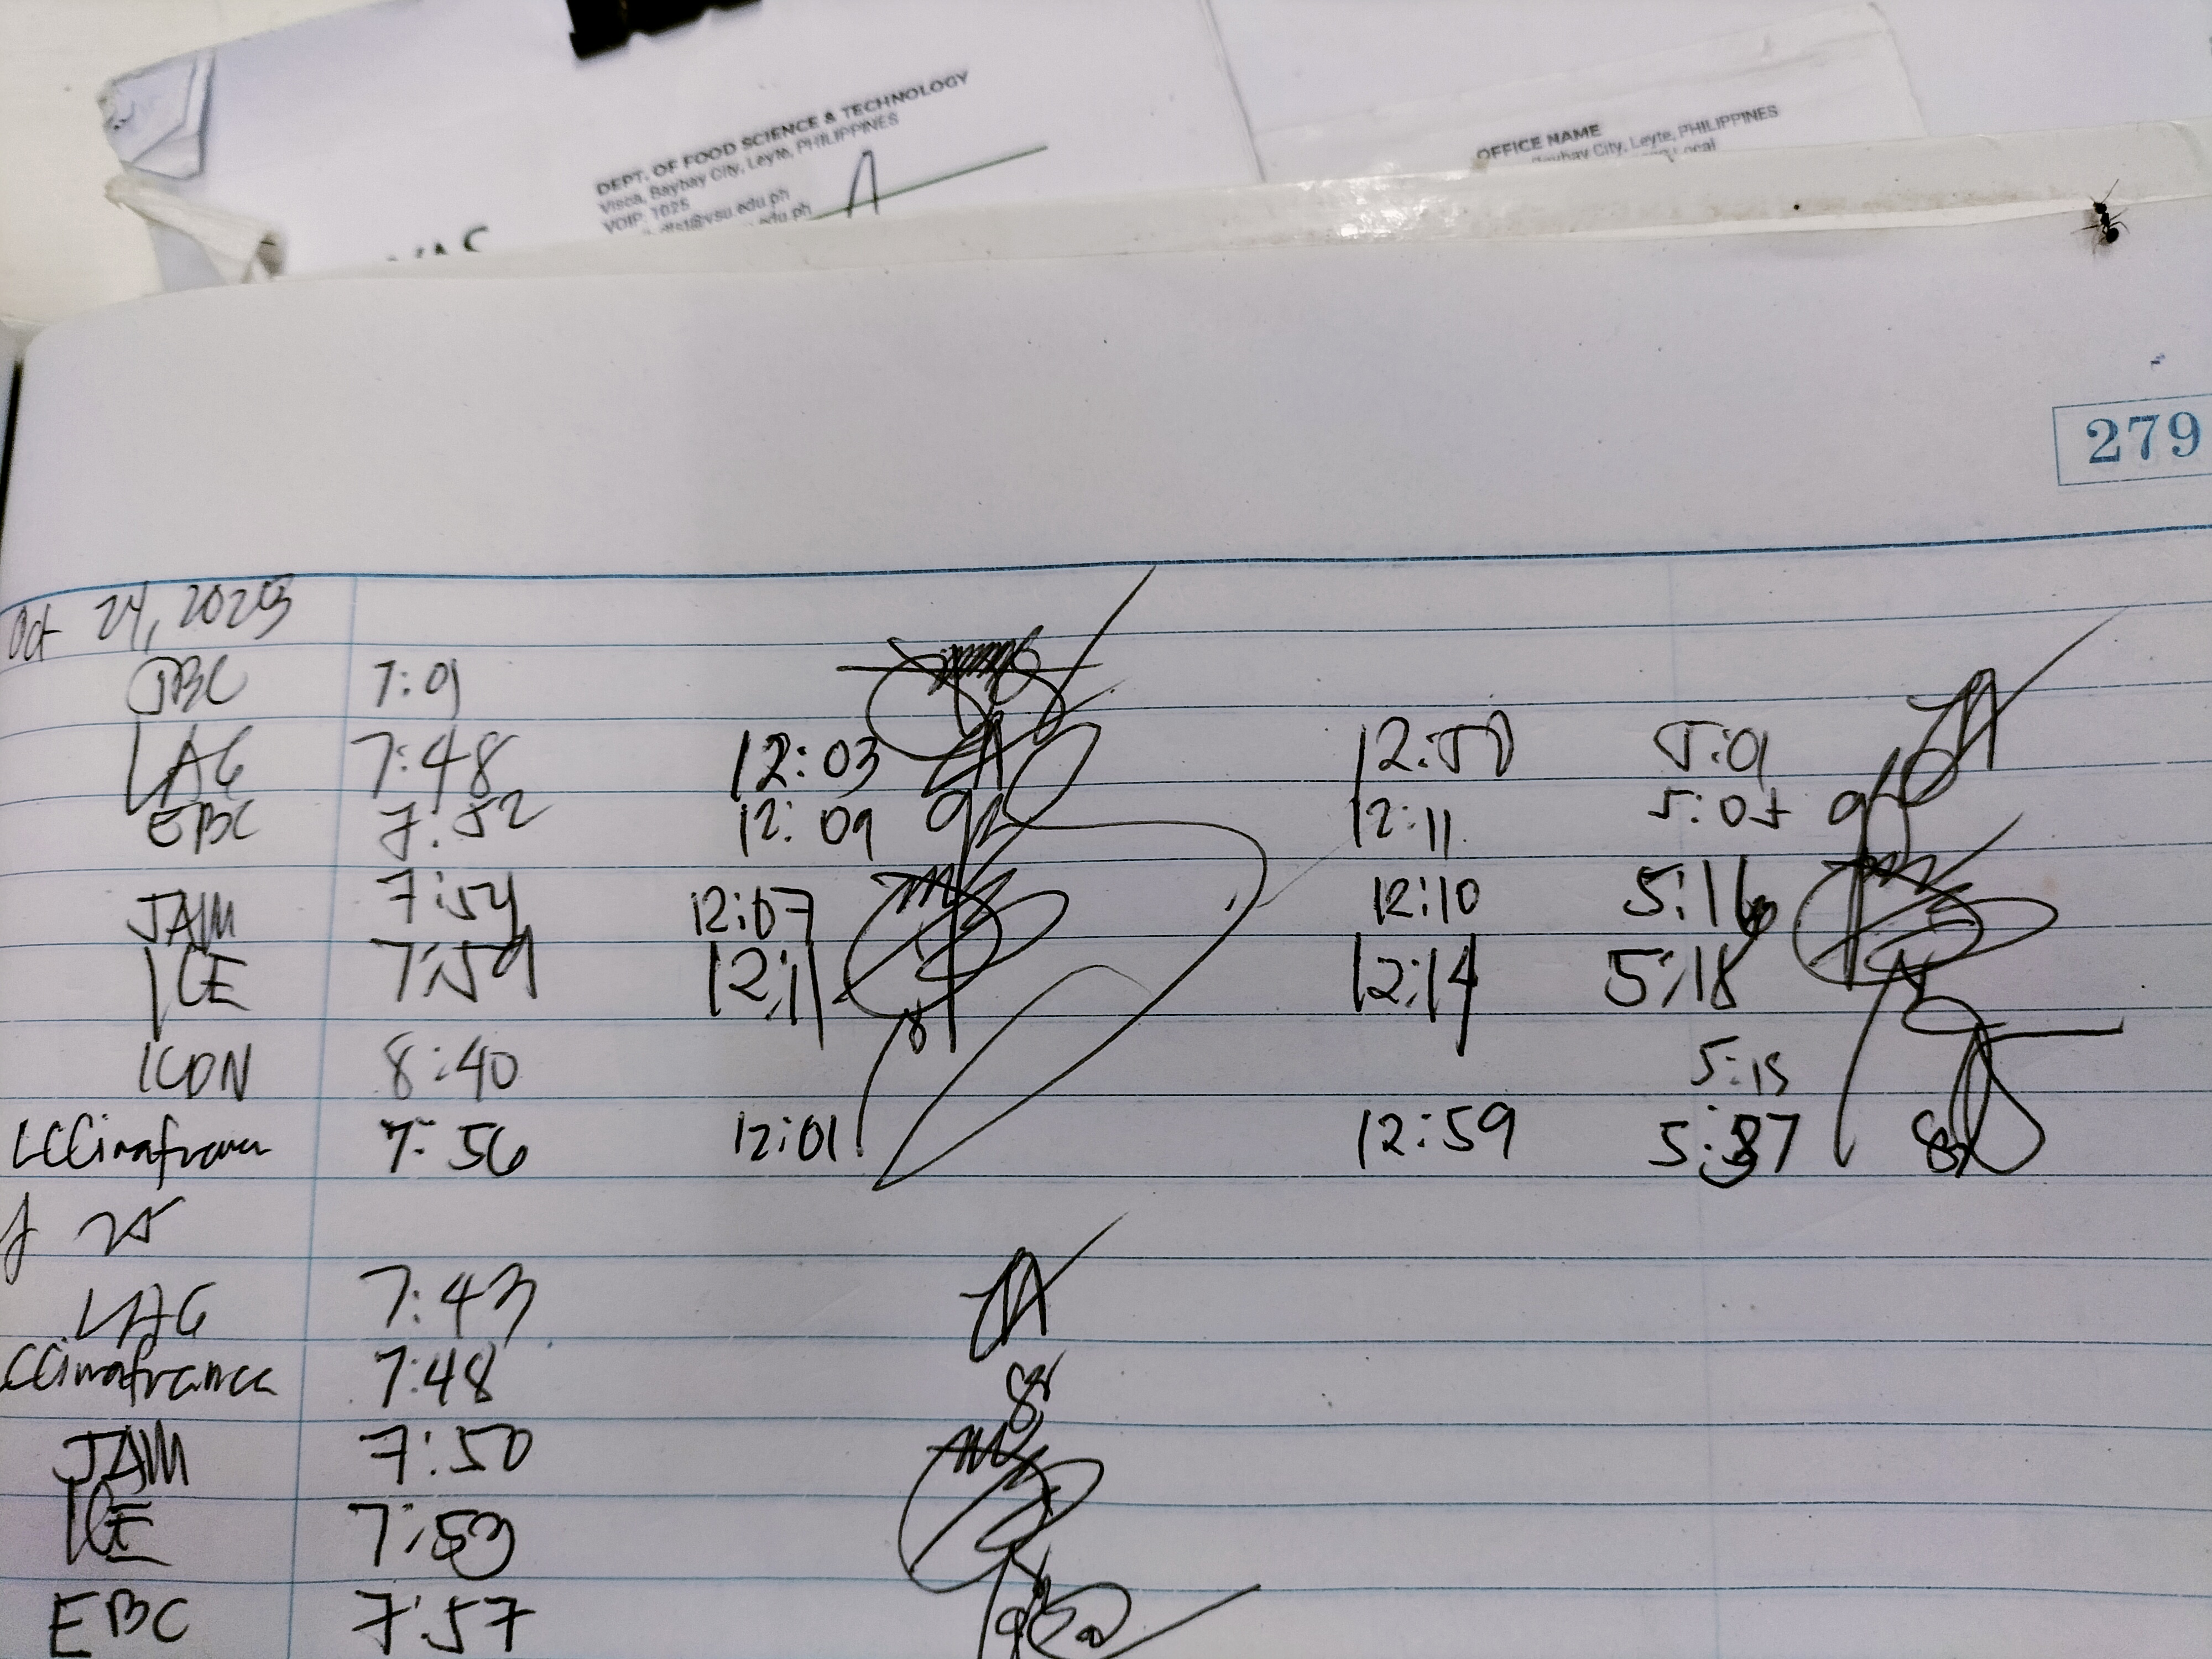 DEPT. OF FOOD SCIENCE & TECHNOLOGY
Visca, Baybay City, Leyte, PHILIPPINES
VOIP: 1025
dfst@vsu.edu.ph
edu.ph
OFFICE NAME
Baybay City, Leyte, PHILIPPINES
Local
279
Oct 24, 2025
JBC 7:09
LAG 7:48 12:03 12:50 5:01
EBC 7:52 12:09 12:11 5:05
JAM 7:54 12:07 12:10 5:16
ICE 7:59 12:11 12:14 5:18
ICON 8:40 5:15
LCCinafranca 7:56 12:01 12:59 5:37
25
LAG 7:43
CCinafranca 7:48
JAM 7:50
ICE 7:53
EBC 7:57